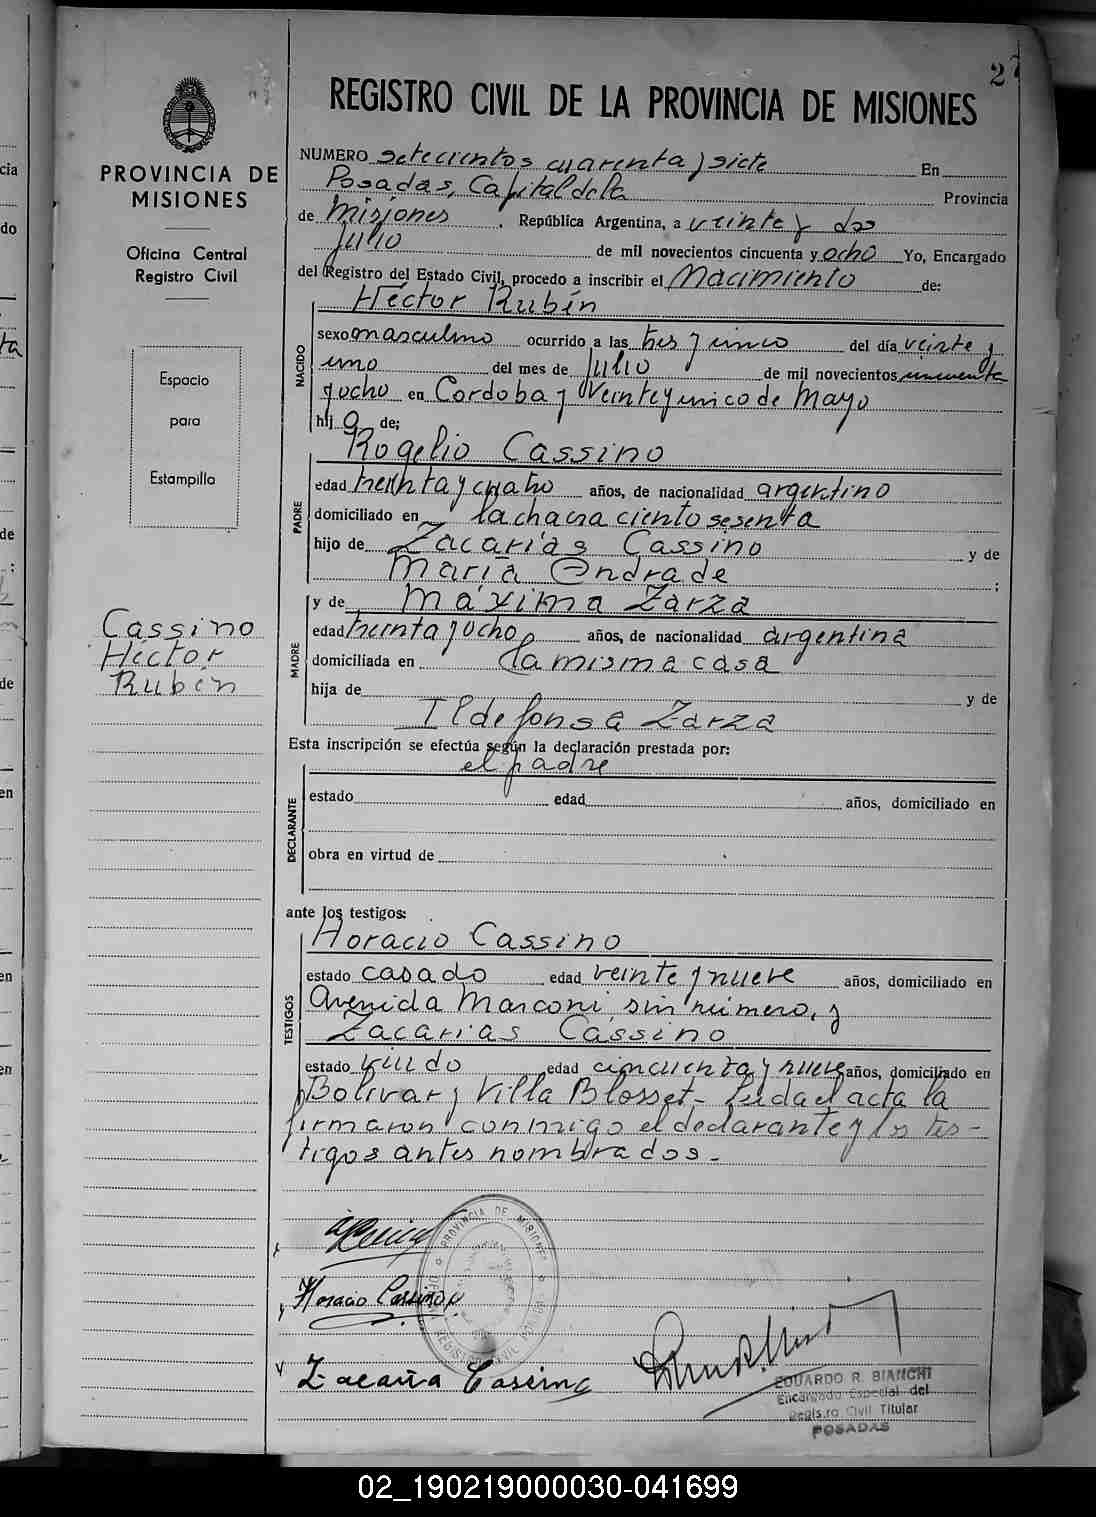 27
REGISTRO CIVIL DE LA PROVINCIA DE MISIONES
PROVINCIA DE
MISIONES
Oficina Central
Registro Civil
Espacio
para
Estampilla
Cassino
Héctor
Rubén
NUMERO setecientos cuarenta y siete En
Posadas, Capital de la Provincia
de Misiones, República Argentina, a veinte y dos
Julio de mil novecientos cincuenta y ocho Yo, Encargado
del Registro del Estado Civil, procedo a inscribir el Nacimiento de:
NACIDO
Héctor Rubén
sexo masculino ocurrido a las tres y cinco del día veinte y
uno del mes de Julio de mil novecientos cincuenta
y ocho en Cordoba y Veinte y cinco de Mayo
hij o de;
PADRE
Rogelio Cassino
edad treinta y cuatro años, de nacionalidad argentino
domiciliado en la chacra ciento sesenta
hijo de Zacarías Cassino y de
María Andrade ;
MADRE
y de Máxima Zarza
edad treinta y ocho años, de nacionalidad argentina
domiciliada en la misma casa
hija de y de
Ildefonsa Zarza
Esta inscripción se efectúa según la declaración prestada por:
DECLARANTE
el padre
estado edad años, domiciliado en
obra en virtud de
ante los testigos:
TESTIGOS
Horacio Cassino
estado casado edad veinte y nueve años, domiciliado en
Avenida Marconi, sin número, y
Zacarias Cassino
estado viudo edad cincuenta y nueve años, domiciliado en
Bolivar y Villa Blosset.- Leída el acta la
firmaron conmigo el declarante y los tes-
tigos antes nombrados.-
PROVINCIA DE MISIONES
Horacio Cassino
Zacaria Cassino
EDUARDO R. BIANCHI
Encargado Especial del
Registro Civil Titular
POSADAS
02_190219000030-041699